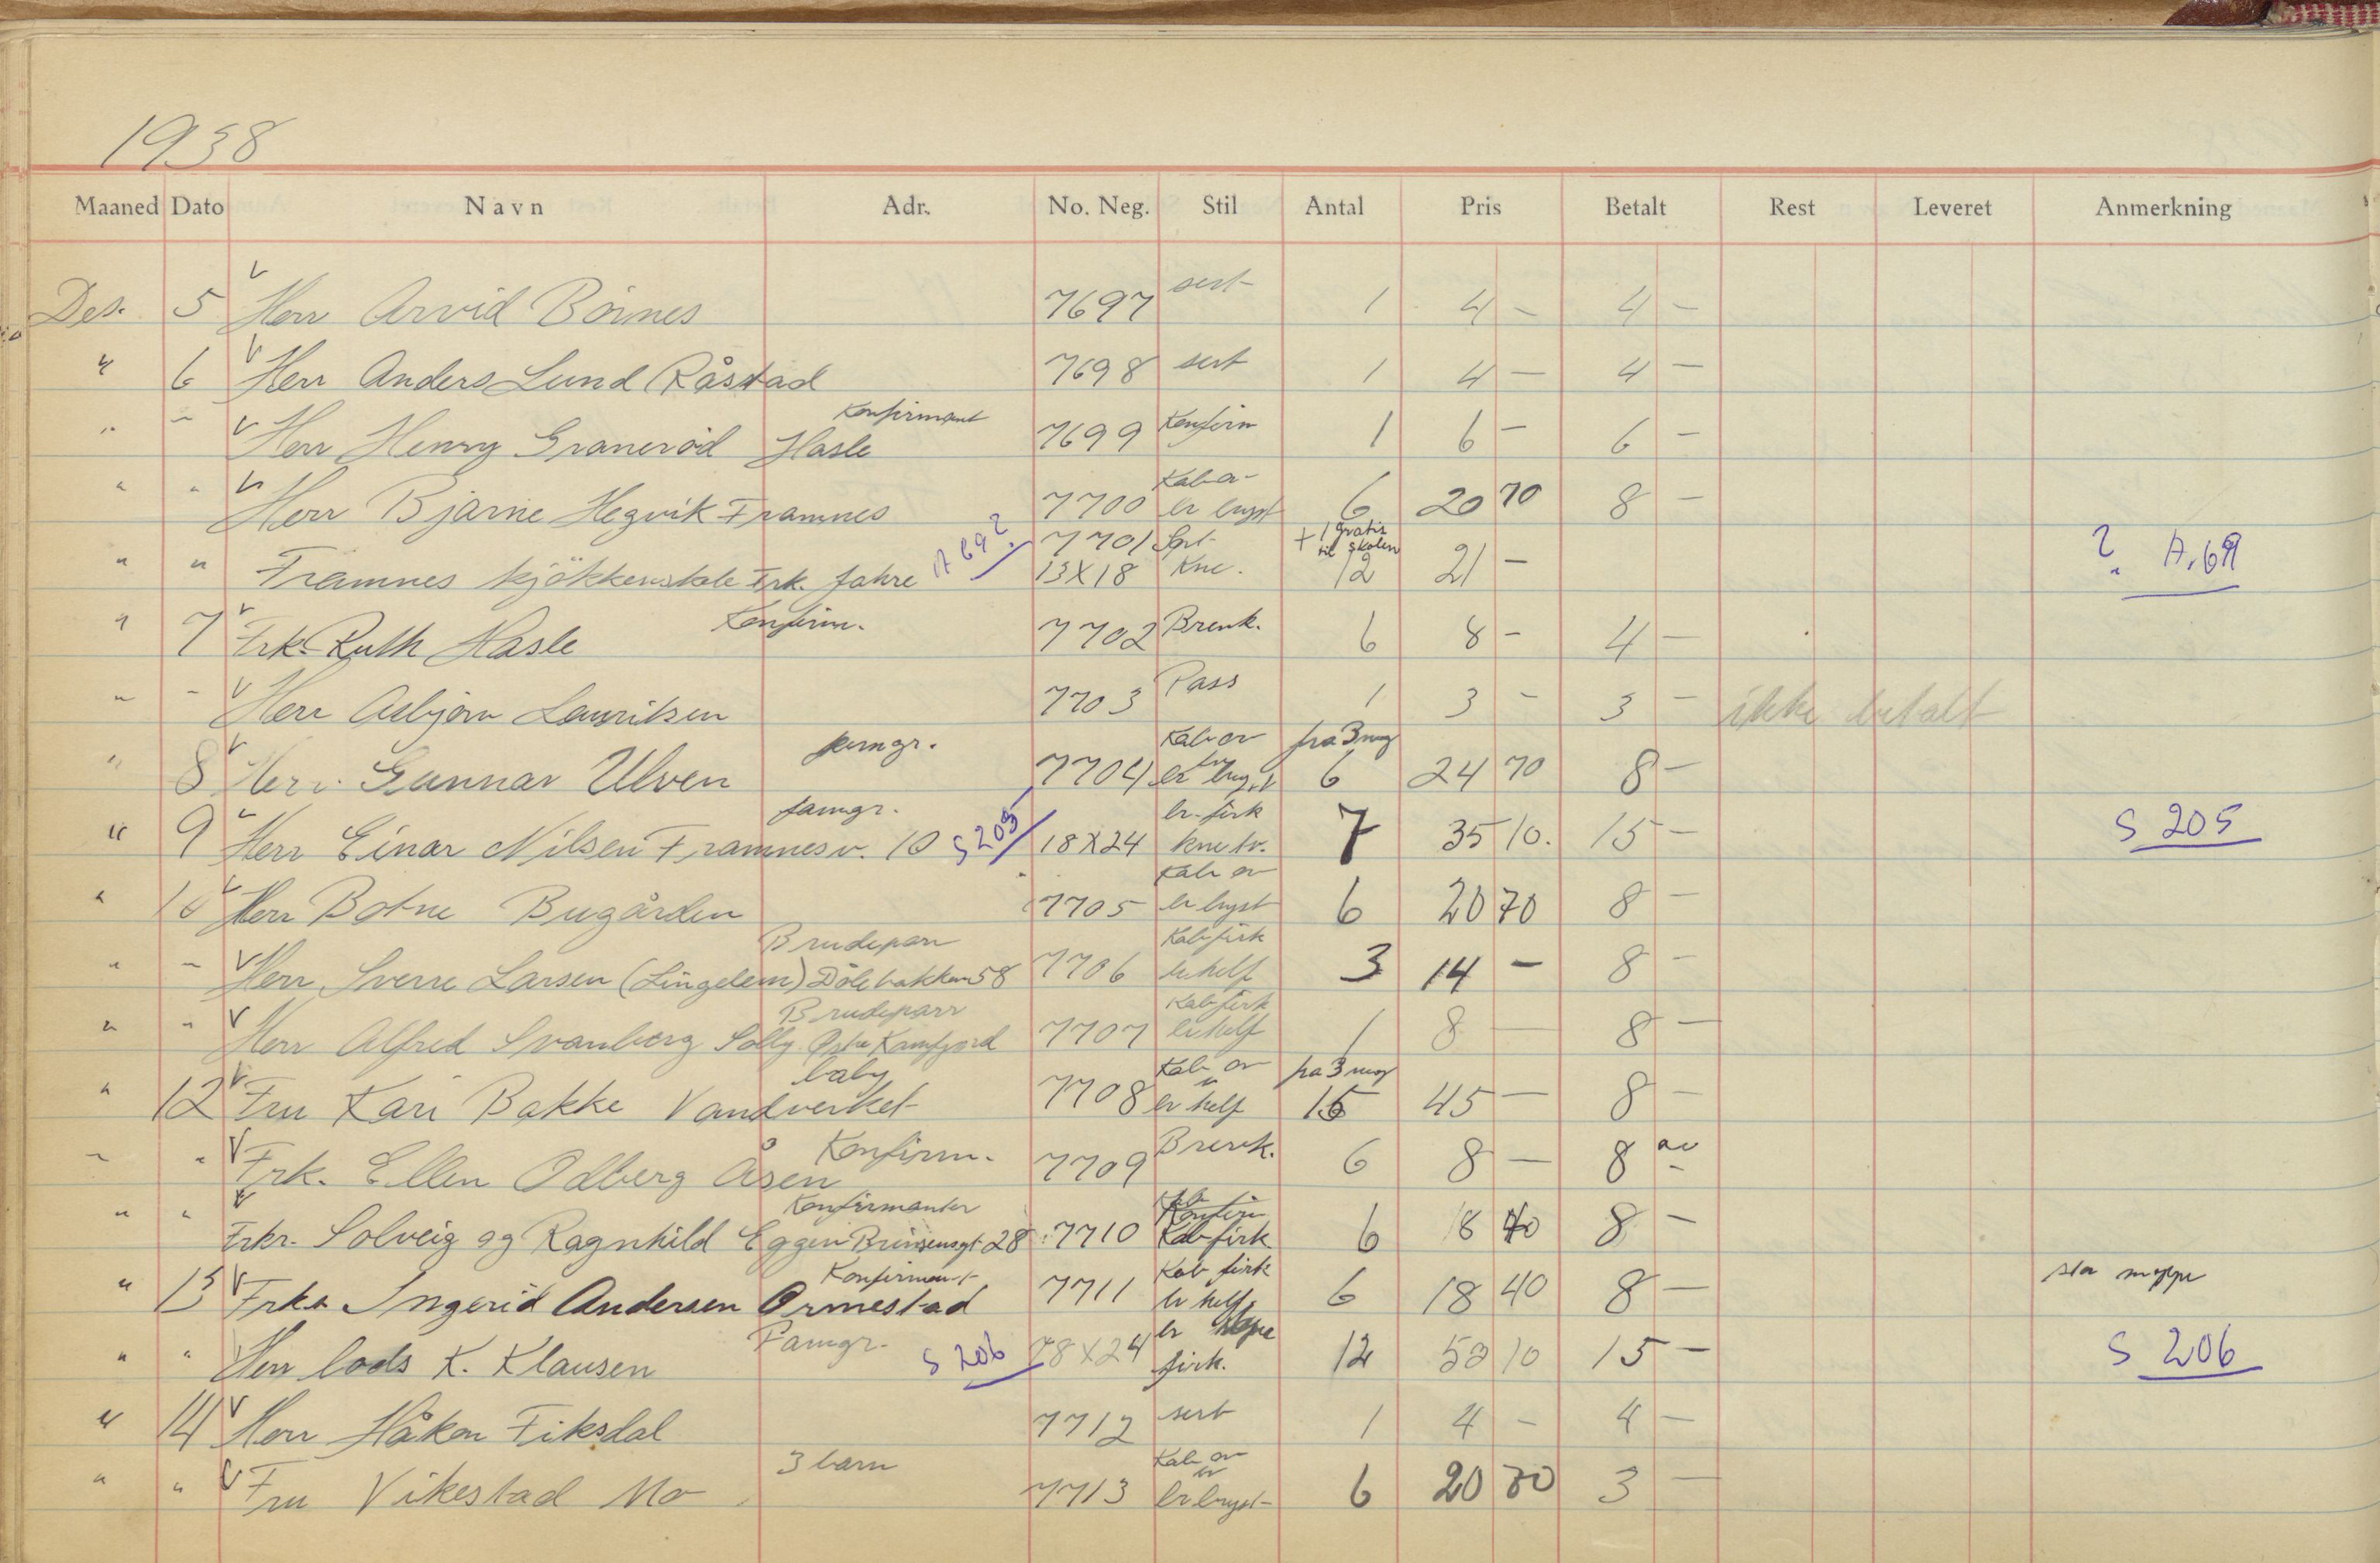 1938
Maaned Dato Navn Adr. No. Neg. Stil Antal Pris Betalt Rest Leveret Anmerkning
Des. 5 Herr Arvid Börnes 7697 sert 1 4 – 4 –
" 6 Herr Anders Lund Råstad 7698 sert 1 4 – 4 –
Konfirmant
" " Herr Henry Graneröd Hasle 7699 Konfirm 1 6 – 6 –
Kab
" " Herr Bjarne Hegvik Framnes 7700 br bryst 6 20 70 8 –
7701 + 1 gratis til skolen
" " Framnes kjökkenskole Frk. Jahre A 69 ? 13X18 Kne. 12 21 – ? A. 69
Konfirm.
" 7 Frk. Ruth Hasle 7702 Brevk. 6 8 – 4 –
" " Herr Asbjørn Lauritsen 7703 Pass 1 3 – 3 – ikke betalt
Kab ov fra 3 neg
" 8 Herr Gunnar Ulven 7704 6 24 70 8 –
famgr. br. firk
" 9 Herr Einar Nilsen Framnesv. 10 S 205 18X24 7 35 10. 15 – S 205
Kab ov
" 10 Herr Botne Bugården 7705 br bryst 6 20 70 8 –
Brudepar Kab firk
" " Herr Sverre Larsen (Lingelem) Dölebakken 58 7706 br helf 3 14 – 8 –
Brudeparr Kab firk
" " Herr Alfred Svanberg Solly Östre Kamfjord 7707 br helf 1 8 – 8 –
baby Kab ov fra 3 neg
" 12 Fru Kari Bakke Vandverket 7708 br helf 15 45 – 8 –
Konfirm.
" " Frk. Ellen Odberg Åsen 7709 Brevk. 6 8 – 8
Konfirmanter
" " Frkr. Solveig og Ragnhild Eggen 28 7710 Kab firk 6 18 40 8 –
Konfirmant Kab firk
" 13 Frk. Ingerid Andersen Ormestad 7711 br helf 6 18 40 8 – stor mappe
Famgr. br
" " Herr lods K. Klausen S 206 18X24 firk. 12 50 10 15 – S 206
" 14 Herr Håkon Fiksdal 7712 sert 1 4 – 4 –
3 barn Kab ov
" " Fru Vikestad Mo 7713 br bryst 6 20 70 3 –